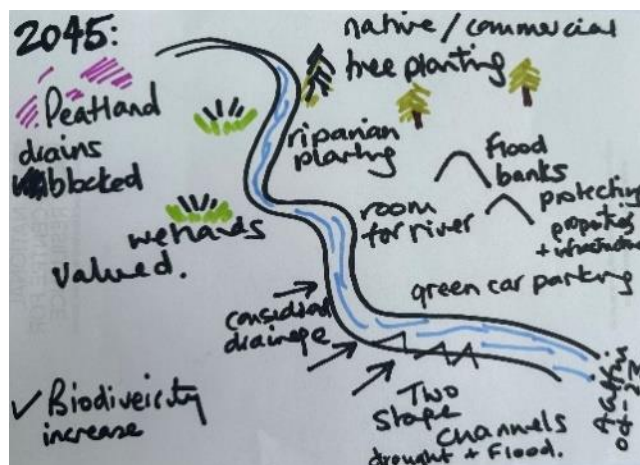 2045:
native / commercial
tree planting
Peatland
drains
blocked
riparian
planting
flood
banks
protecting
properties
+ infrastructure
room
for river
wetlands
valued.
green car parking
considered
drainage
✓ Biodiversity
increase
Two
stage
channels
drought + flood.